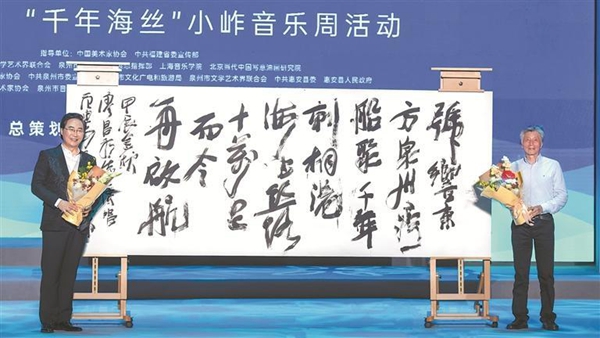 “千年海丝”小岞音乐周活动
指导单位：中国美术家协会 中共福建省委宣传部
学艺术界联合会 指挥部 上海音乐学院 北京当代中国写意油画研究院
家协会 中共泉州市委 市文化广电和旅游局 泉州市文学艺术界联合会 中共惠安县委 惠安县人民政府
术家协会 泉州市音
总策划
號響東
方泉州灣
船聚千年
刺桐港
海上丝路
十萬里
而今
再啟航
甲辰金秋
廖昌永